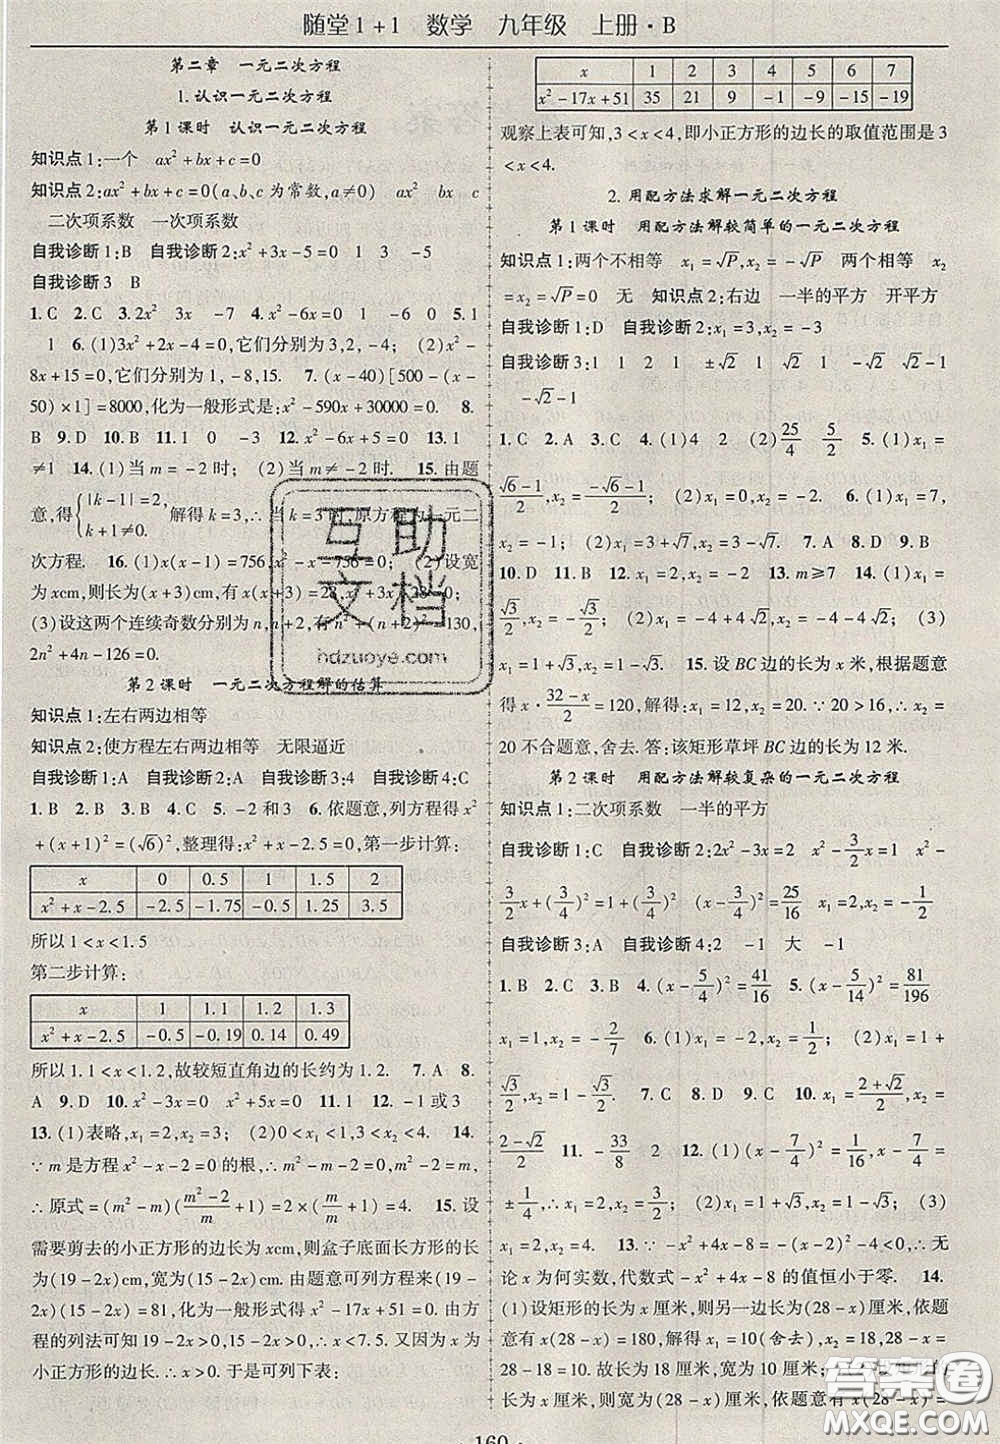 随堂1+1 数学 九年级 上册·B
第二章 一元二次方程
1.认识一元二次方程
第1课时 认识一元二次方程
知识点1:一个 ax²+bx+c=0
知识点2:ax²+bx+c=0(a、b、c为常数,a≠0) ax² bx c
二次项系数 一次项系数
自我诊断1:B 自我诊断2:x²+3x-5=0 1 3 -5
自我诊断3 B
1.C 2.C 3.2x² 3x -7 4.x²-6x=0 1 -6 0 5.1
1 6.(1)3x²+2x-4=0,它们分别为3,2,-4; (2)x²-
8x+15=0,它们分别为1,-8,15. 7.(x-40)[500-(x-
50)×1]=8000,化为一般形式是:x²-590x+30000=0. 8.
B 9.D 10.B 11.1 0 -3 12.x²-6x+5=0 13.1
≠1 14.(1)当m=-2时; (2)当m≠-2时. 15.由题
意,得{|k-1|=2, k+1≠0. 解得k=3,∴当k=3时,原方程为一元二
次方程. 16.(1)x(x-1)=756,x²-x-756=0; (2)设宽
为xcm,则长为(x+3)cm,有x(x+3)=28,x²+3x-28=0;
(3)设这两个连续奇数分别为n,n+2,有n²+(n+2)²=130,
2n²+4n-126=0.
第2课时 一元二次方程解的估算
知识点1:左右两边相等
知识点2:使方程左右两边相等 无限逼近
自我诊断1:A 自我诊断2:A 自我诊断3:4 自我诊断4:C
1.B 2.C 3.A 4.B 5.-2和3 6.依题意,列方程得x²
+(x+1)²=(√6)²,整理得:x²+x-2.5=0,第一步计算:
x 0 0.5 1 1.5 2
x²+x-2.5 -2.5 -1.75 -0.5 1.25 3.5
所以1<x<1.5
第二步计算:
x 1 1.1 1.2 1.3
x²+x-2.5 -0.5 -0.19 0.14 0.49
所以1.1<x<1.2,故较短直角边的长约为1.2. 7.A 8.
A 9.D 10.x²-3x=0 x²-5x=0 11.1 12.-1或3
13.(1)表略,x₁=2,x₂=3; (2)0<x₁<1,3<x₂<4. 14.
∵m是方程x²-x-2=0的根,∴m²-m-2=0,m²-m=2,
∴原式=(m²-m)((m²-2)/m+1)=2×(m/m+1)=4. 15.设
需要剪去的小正方形的边长为xcm,则盒子底面长方形的长
为(19-2x)cm,宽为(15-2x)cm.由题意可列方程(19-
2x)(15-2x)=81,化为一般形式得x²-17x+51=0.由方
程的列法可知19-2x>0,15-2x>0,∴x<7.5又因为x为
小正方形的边长.∴x>0.于是可列下表:
x 1 2 3 4 5 6 7
x²-17x+51 35 21 9 -1 -9 -15 -19
观察上表可知,3<x<4,即小正方形的边长的取值范围是3
<x<4.
2.用配方法求解一元二次方程
第1课时 用配方法解较简单的一元二次方程
知识点1:两个不相等 x₁=√P,x₂=-√P 两个相等 x₂
=x₂=√P=0 无 知识点2:右边 一半的平方 开平方
自我诊断1:D 自我诊断2:x₁=3,x₂=-3
自我诊断3:1 1 2 1 ±√2 √2 √2 -√2 √2-1
-√2-1
1.C 2.A 3.C 4.(1)4 2 (2)25/4 5/2 5.(1)x₁=
(√6-1)/2,x₂=-(√6+1)/2; (2)x₁=1,x₂=0. 6.(1)x₁=7,
x₂=-5; (2)x₁=3+√7,x₂=3-√7. 7.A 8.D 9.B
10.D 11.A 12.x₁=1,x₂=-2 13.m≥7 14.(1)x₁=
√3/2,x₂=-√3/2; (2)x₁=-4+4√2,x₂=-4-4√2; (3)
x₁=1+√3,x₂=1-√3. 15.设BC边的长为x米,根据题意
得:x·(32-x)/2=120,解得:x₁=12,x₂=20.∵20>16,∴x₂=
20不合题意,舍去.答:该矩形草坪BC边的长为12米.
第2课时 用配方法解较复杂的一元二次方程
知识点1:二次项系数 一半的平方
自我诊断1:C 自我诊断2:2x²-3x=2 x²-3/2x=1 x²-
3/2x+(3/4)²=1+(3/4)² (x-3/4)²=25/16 x₁=2,x₂=-1/2
自我诊断3:A 自我诊断4:2 -1 大 -1
1.B 2.C 3.A 4.(x-5/4)²=41/16 5.(x-5/14)²=81/196
x₁=1,x₂=-2/7 6.(1)x₁=2,x₂=-1/2; (2)x₁=1+
√3/2,x₂=1-√3/2. 7.D 8.D 9.B 10.x₁=(2+√2)/2,x₂=
(2-√2)/2 11.-33/8 2 12.(1)(x-7/4)²=1/16,x-7/4=
±1/4,x₁=2,x₂=3/2; (2)x₁=1+√3,x₂=1-√3; (3)
x₁=3,x₂=1. 13.∵-x²+4x-8=-(x-2)²-4<0,∴无
论x为何实数,代数式-x²+4x-8的值恒小于零. 14.
(1)设矩形的长为x厘米,则另一边长为(28-x)厘米,依题
意有x(28-x)=180,解得x₁=10(舍去),x₂=18,28-x=
28-18=10.故长为18厘米,宽为10厘米;
长为x厘米,则宽为(28-x)厘米,依题意有x(28-x)=
160
互助文档
hdzuoye.com
答案圈
MXQE.COM